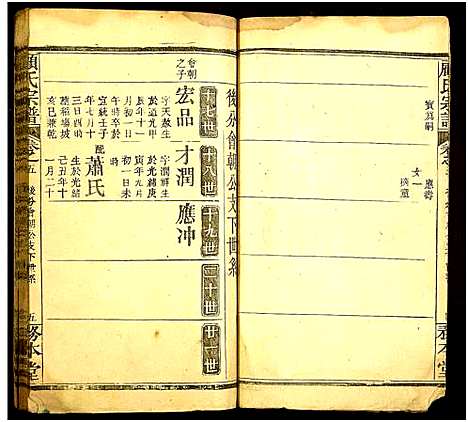 顧氏宗譜
寶寫嗣
女一
務本堂
後分會朝公支下世系
十七世
十八世
十九世
二十世
廿一世
會朝
之子
宏品
字天敖生
於道光甲
辰年十一
月初一日
午時終於
宣統壬子
年七月十
三日酉時
葬稻場坡
亥巳兼乾
才潤
字潤群生
於光緒庚
寅年九月
初一日未
時
配
蕭氏
生於光緒
己丑年十
一月二十
應冲
顧氏宗譜
卷之五
後分會朝公支下世系
五
務本堂